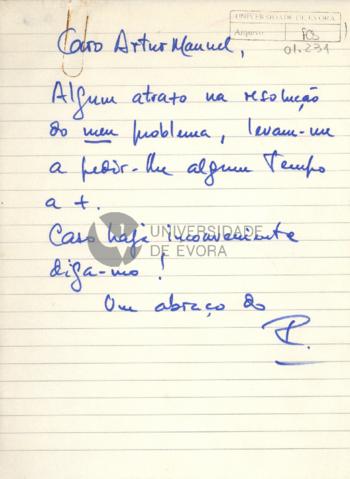 UNIVERSIDADE DE EVORA
Arquivo PCS
01.231
Caro Artur Manuel,
Algum atraso na resolução
do meu problema, levam-me
a pedir-lhe algum tempo
a +.
Caso haja inconveniente
diga-mo!
Um abraço do
P.
UNIVERSIDADE
DE EVORA